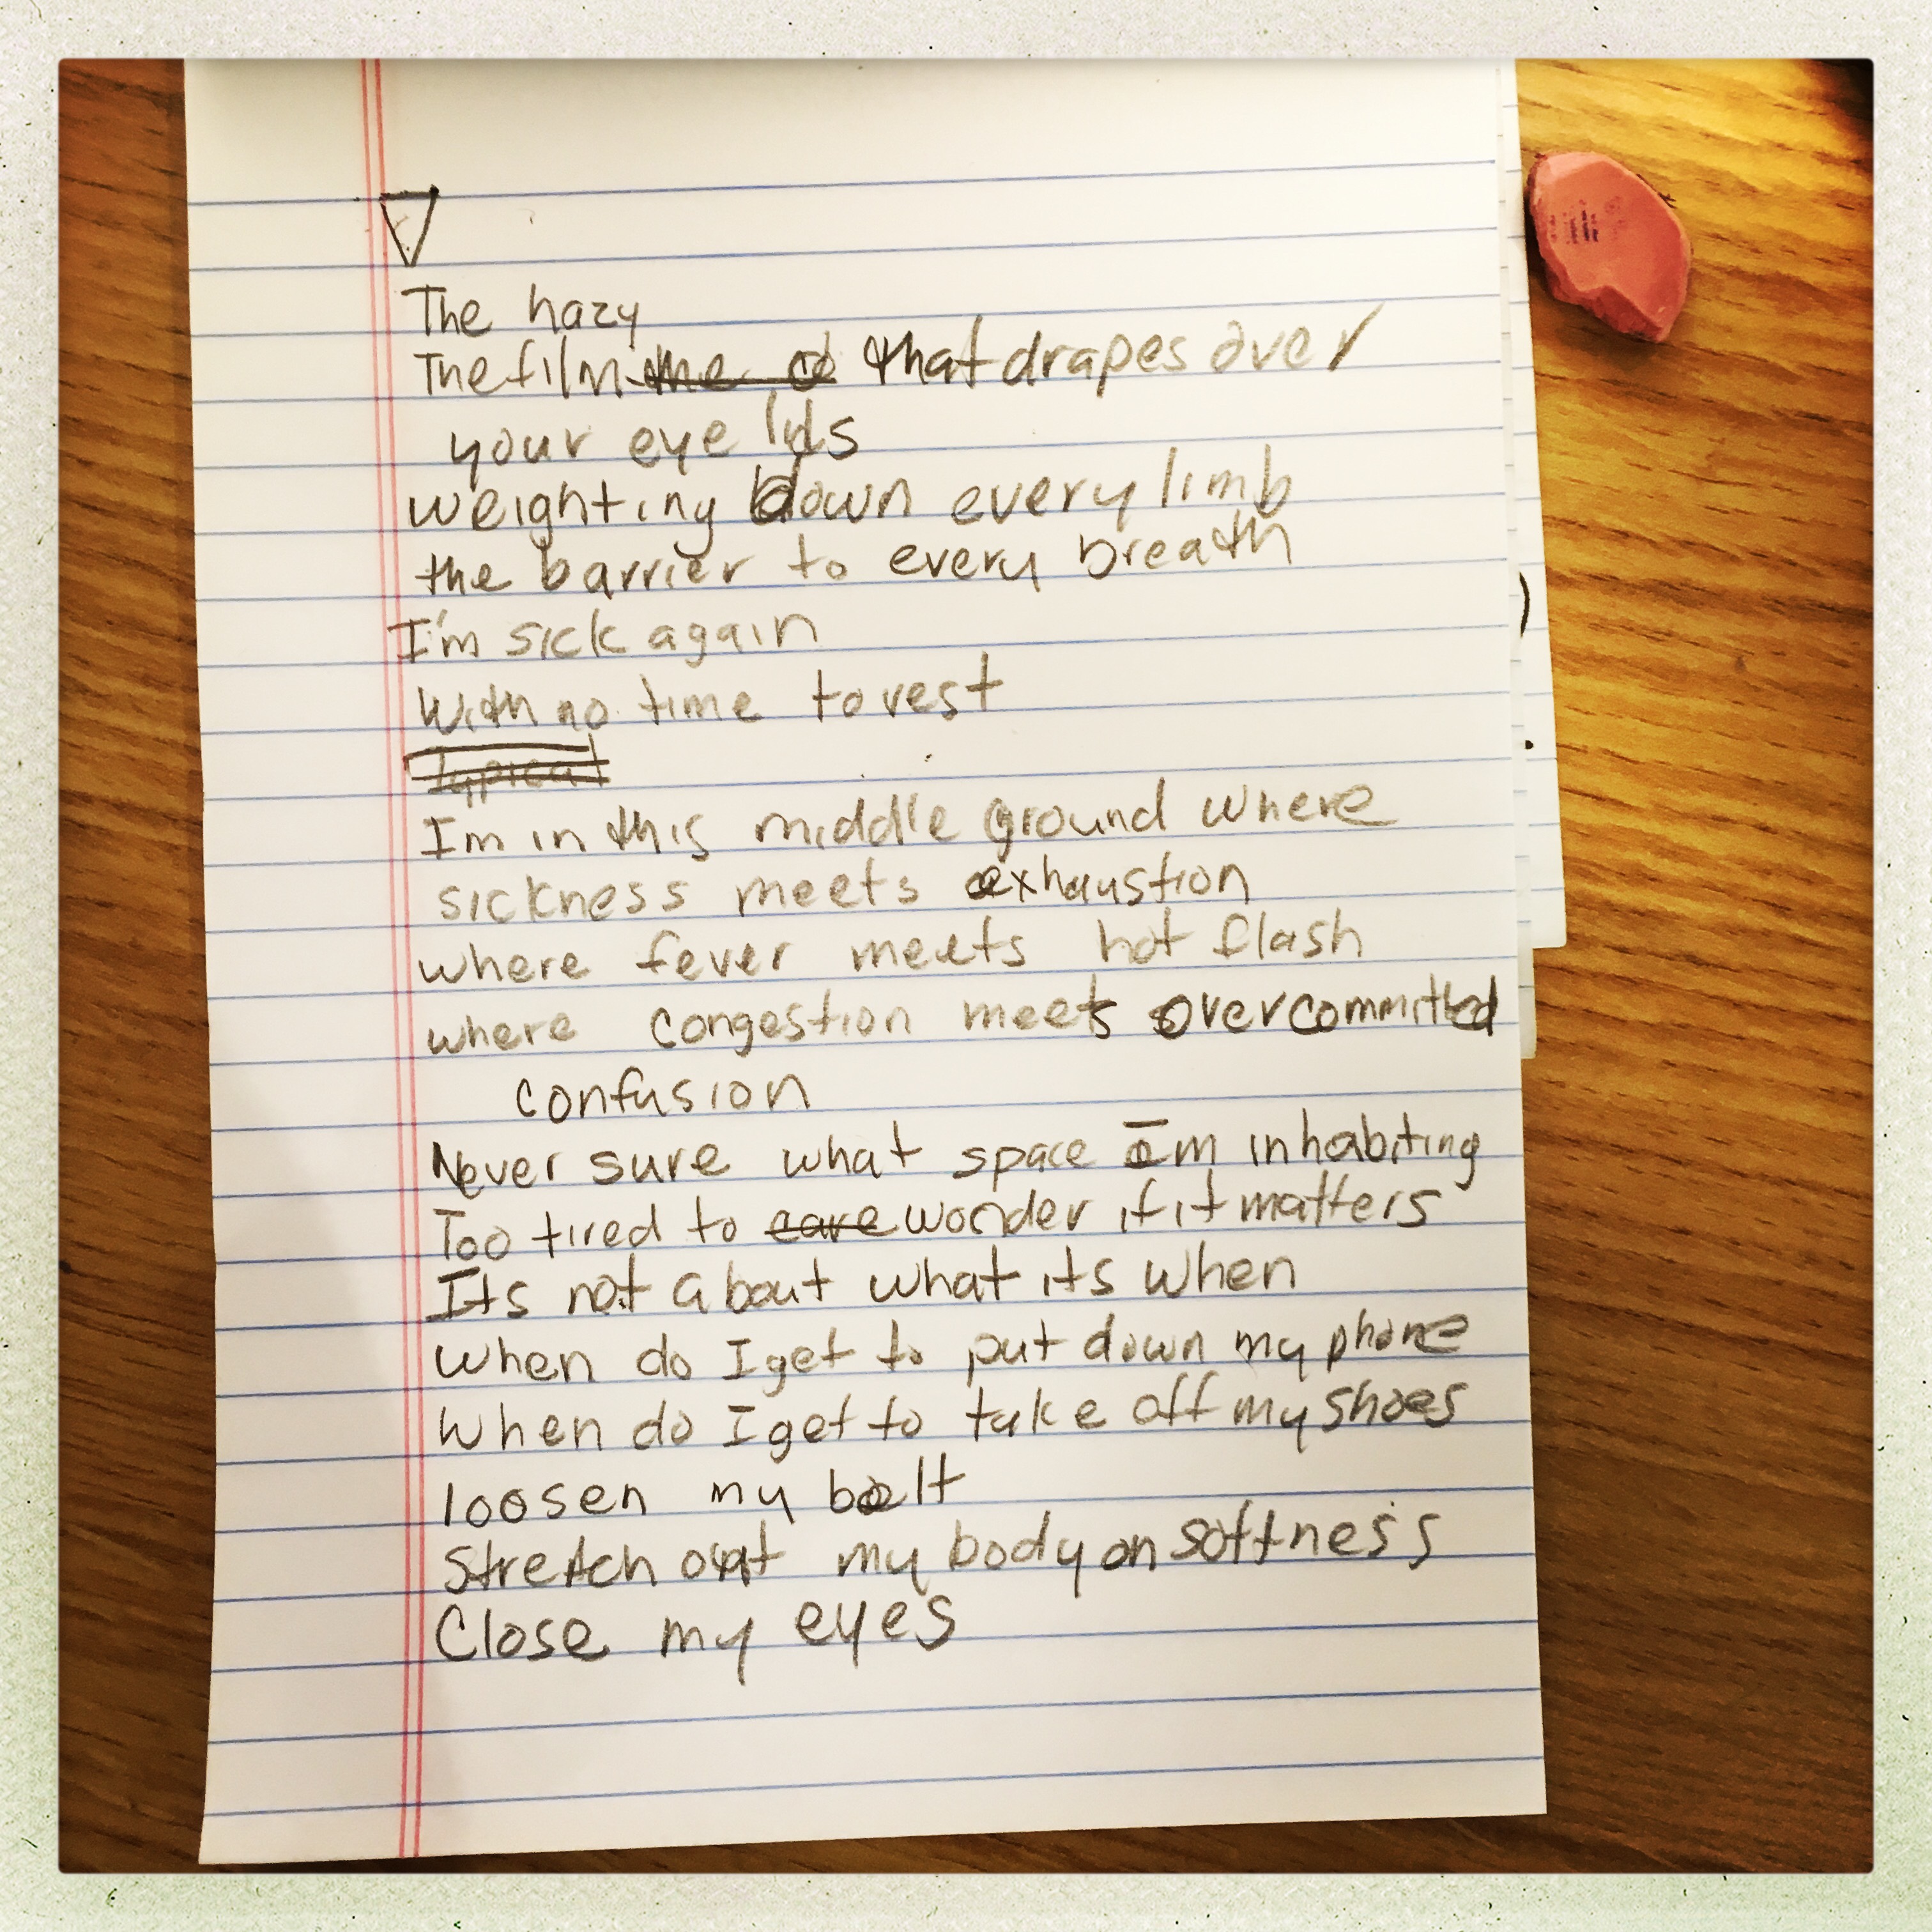 The hazy
The film ~~the~~ that drapes over
your eye lids
weighting down every limb
the barrier to every breath
I'm sick again
With no time to rest
~~Typical~~
Im in this middle ground where
sickness meets exhaustion
where fever meets hot flash
where congestion meets overcommitted
confusion
Never sure what space Im inhabiting
Too tired to ~~care~~ wonder if it matters
Its not about what its when
When do I get to put down my phone
When do I get to take off my shoes
loosen my belt
Stretch out my body on softness
Close my eyes